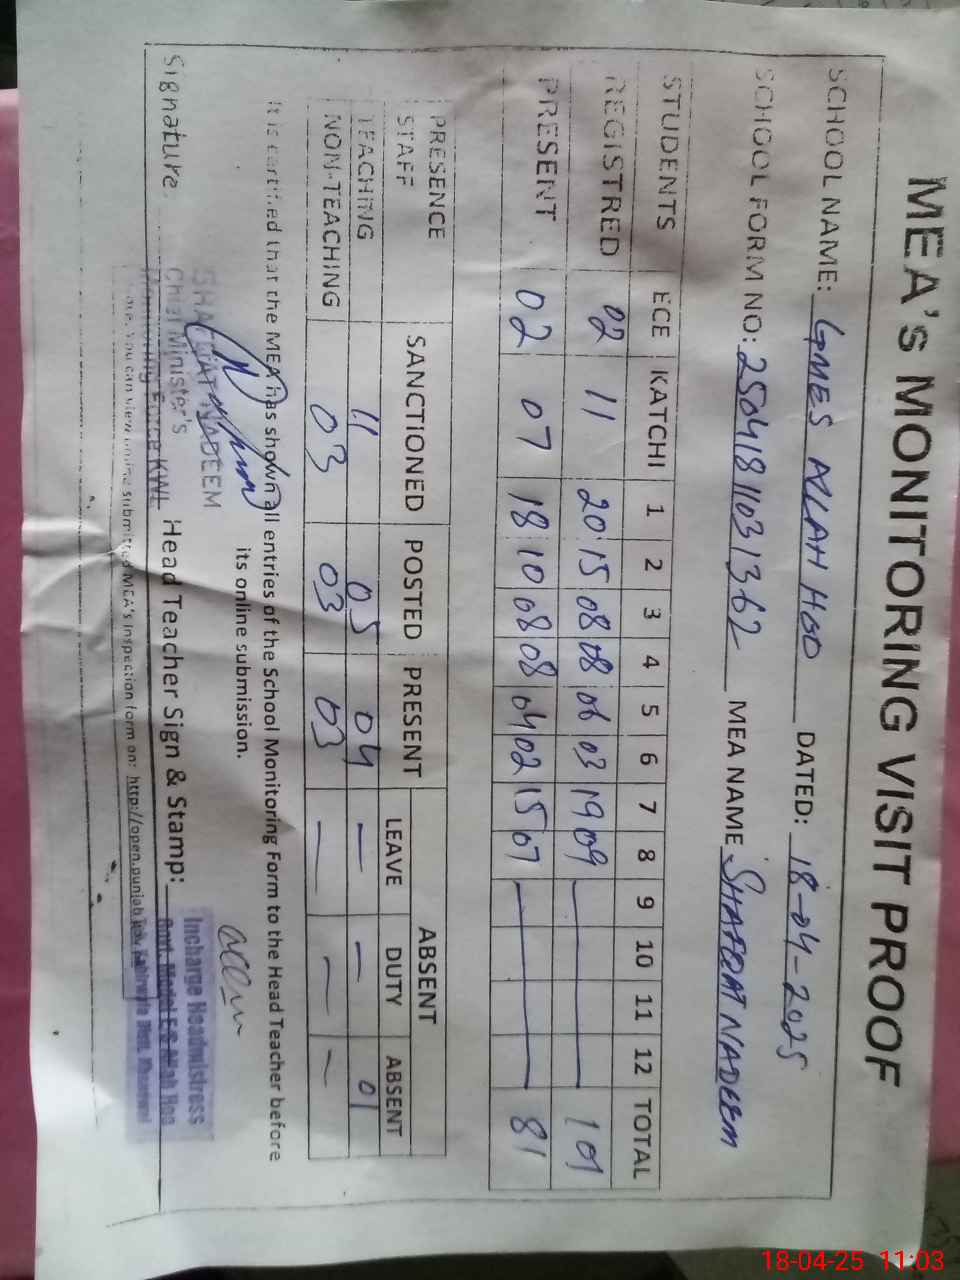 MEA's MONITORING VISIT PROOF
SCHOOL NAME: GMES ALLAH HOO DATED: 18-04-2025
SCHOOL FORM NO: 25041811031362 MEA NAME SHAFQAT NADEEM
STUDENTS ECE KATCHI 1 2 3 4 5 6 7 8 9 10 11 12 TOTAL
REGISTRED 02 11 20 15 08 08 06 03 19 09 — 101
PRESENT 02 07 18 10 08 08 04 02 15 07 — 81
PRESENCE STAFF SANCTIONED POSTED PRESENT ABSENT
LEAVE DUTY ABSENT
TEACHING 11 05 04 — — 01
NON-TEACHING 03 03 03 — — —
It is certified that the MEA has shown all entries of the School Monitoring Form to the Head Teacher before
its online submission.
SHAFQAT NADEEM
Chief Minister's
Monitoring Force KWL
Signature Head Teacher Sign & Stamp:
Incharge Headmistress
Govt. Model E/S Allah Hoo
Kabirwala Distt. Khanewal
Note: You can view online submitted MEA's Inspection form on: http://open.punjab
18-04-25 11:03